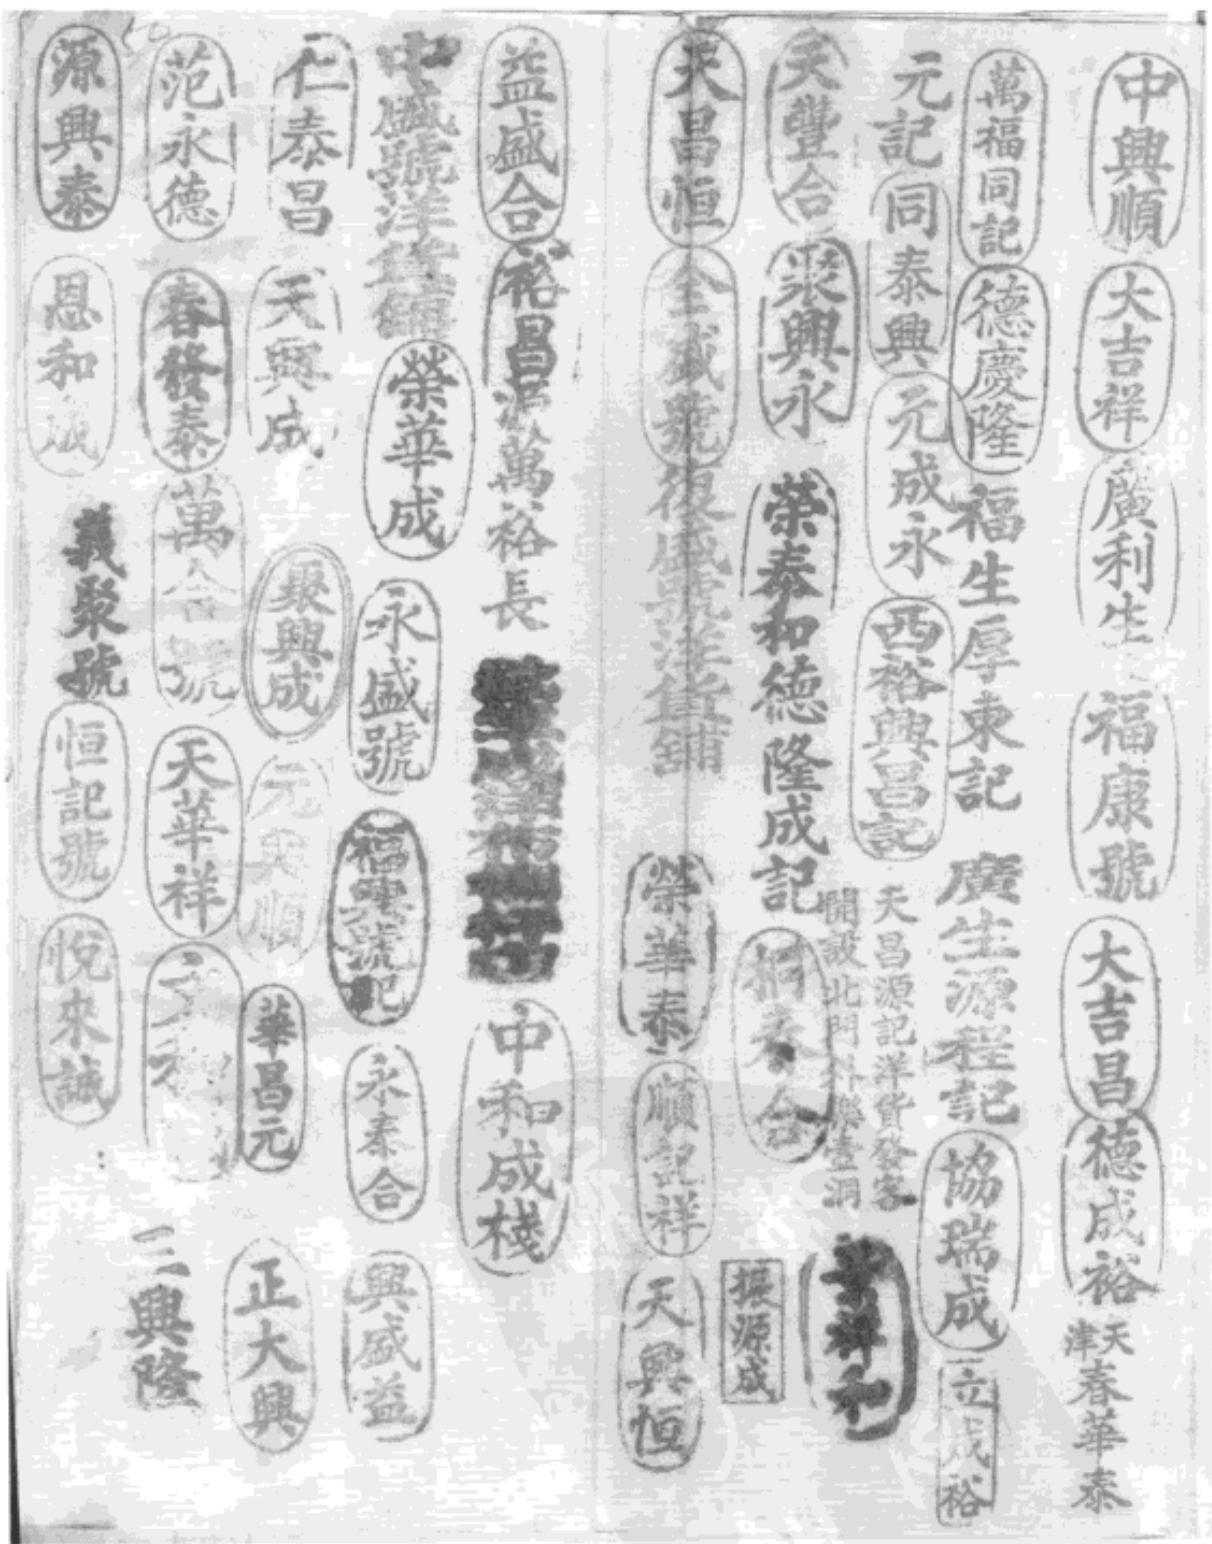 中興順
大吉祥
廣利生
福康號
大吉昌
德成裕
天津春華泰
萬福同記
德慶隆
福生厚東記
廣生源程記
協瑞成
立成裕
元記
同泰興
元成永
西裕興昌記
天昌源記洋貨發客
開設北門外樂壺洞
榮祥和
天豐合
聚興永
榮泰和
德隆成記
桐泰合
振源成
天昌恒
全盛號
復盛號洋貨舖
榮華泰
順記祥
天興恒
益盛合
裕昌源
萬裕長
中和成棧
中盛號洋貨舖
榮華成
永盛號
福興號記
永泰合
興盛益
仁泰昌
天興成
聚興成
元順
華昌元
正大興
范永德
春發泰
萬合號
天華祥
三興隆
源興泰
恩和成
義聚號
恒記號
悅來誠